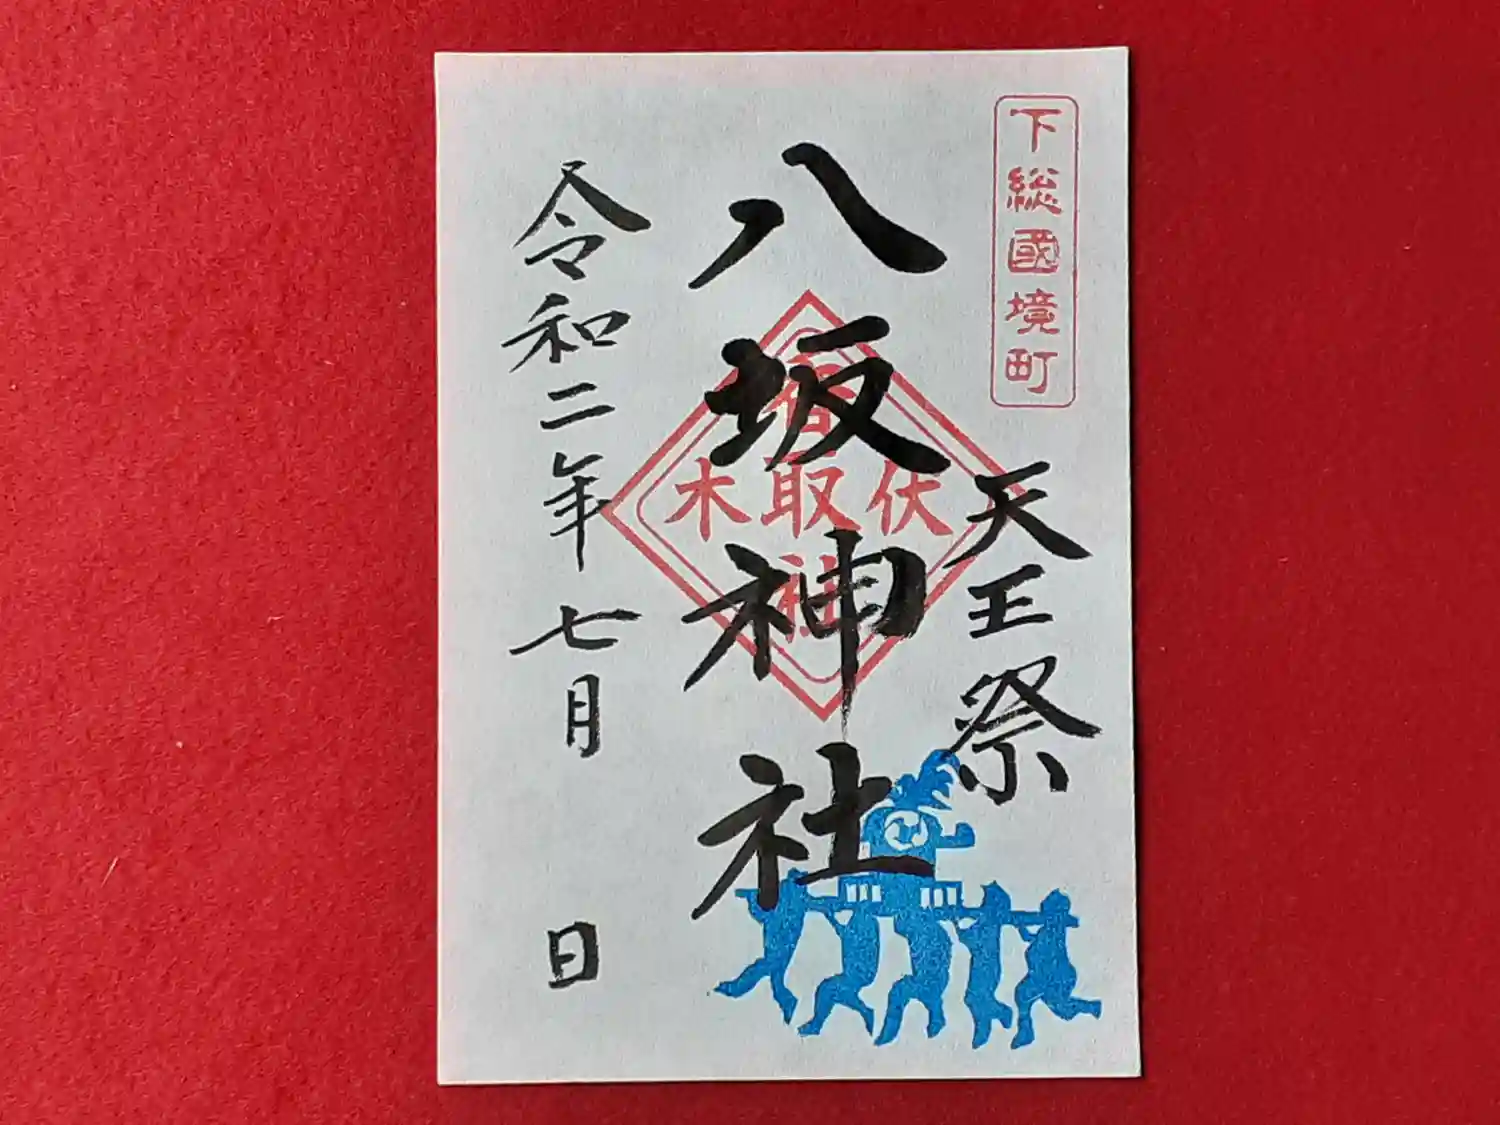 下総國境町
天王祭
八坂神社
香
伏取木
社
令和二年七月 日